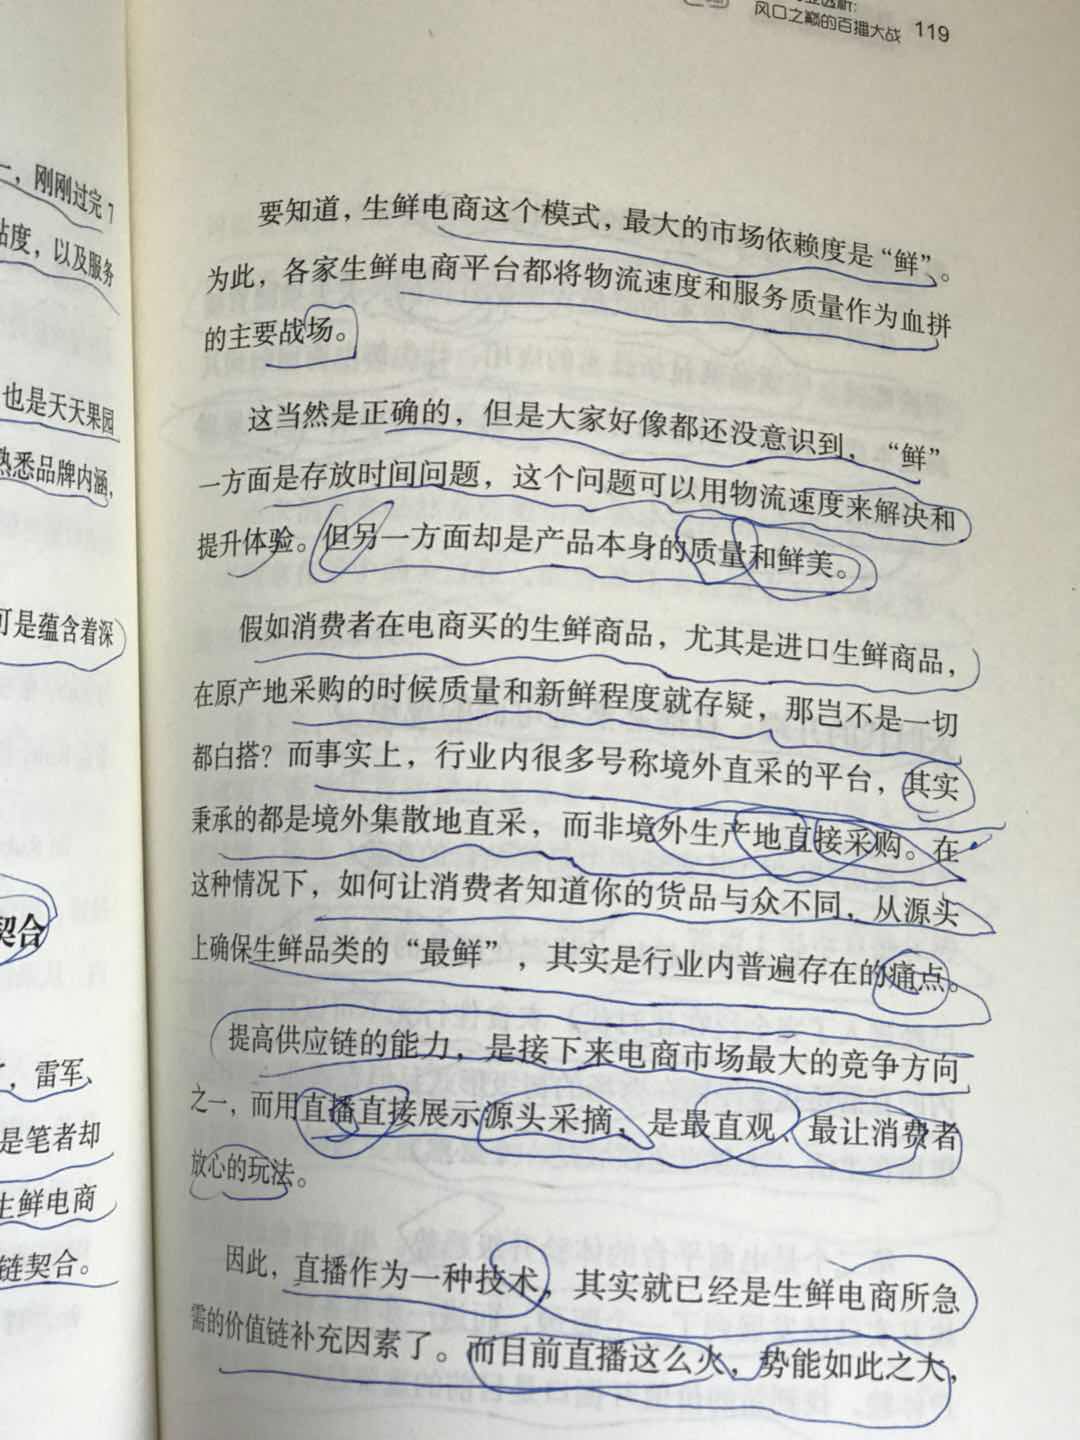 一，刚刚过完7
粘度，以及服务
也是天天果园
熟悉品牌内涵，
可是蕴含着深
契合
，雷军、
是笔者却
生鲜电商
链契合。
风口之巅的百播大战 119
要知道，生鲜电商这个模式，最大的市场依赖度是“鲜”。
为此，各家生鲜电商平台都将物流速度和服务质量作为血拼
的主要战场。
这当然是正确的，但是大家好像都还没意识到，“鲜”
一方面是存放时间问题，这个问题可以用物流速度来解决和
提升体验。但另一方面却是产品本身的质量和鲜美。
假如消费者在电商买的生鲜商品，尤其是进口生鲜商品，
在原产地采购的时候质量和新鲜程度就存疑，那岂不是一切
都白搭？而事实上，行业内很多号称境外直采的平台，其实
秉承的都是境外集散地直采，而非境外生产地直接采购。在
这种情况下，如何让消费者知道你的货品与众不同，从源头
上确保生鲜品类的“最鲜”，其实是行业内普遍存在的痛点。
提高供应链的能力，是接下来电商市场最大的竞争方向
之一，而用直播直接展示源头采摘，是最直观、最让消费者
放心的玩法。
因此，直播作为一种技术，其实就已经是生鲜电商所急
需的价值链补充因素了。而目前直播这么火，势能如此之大，